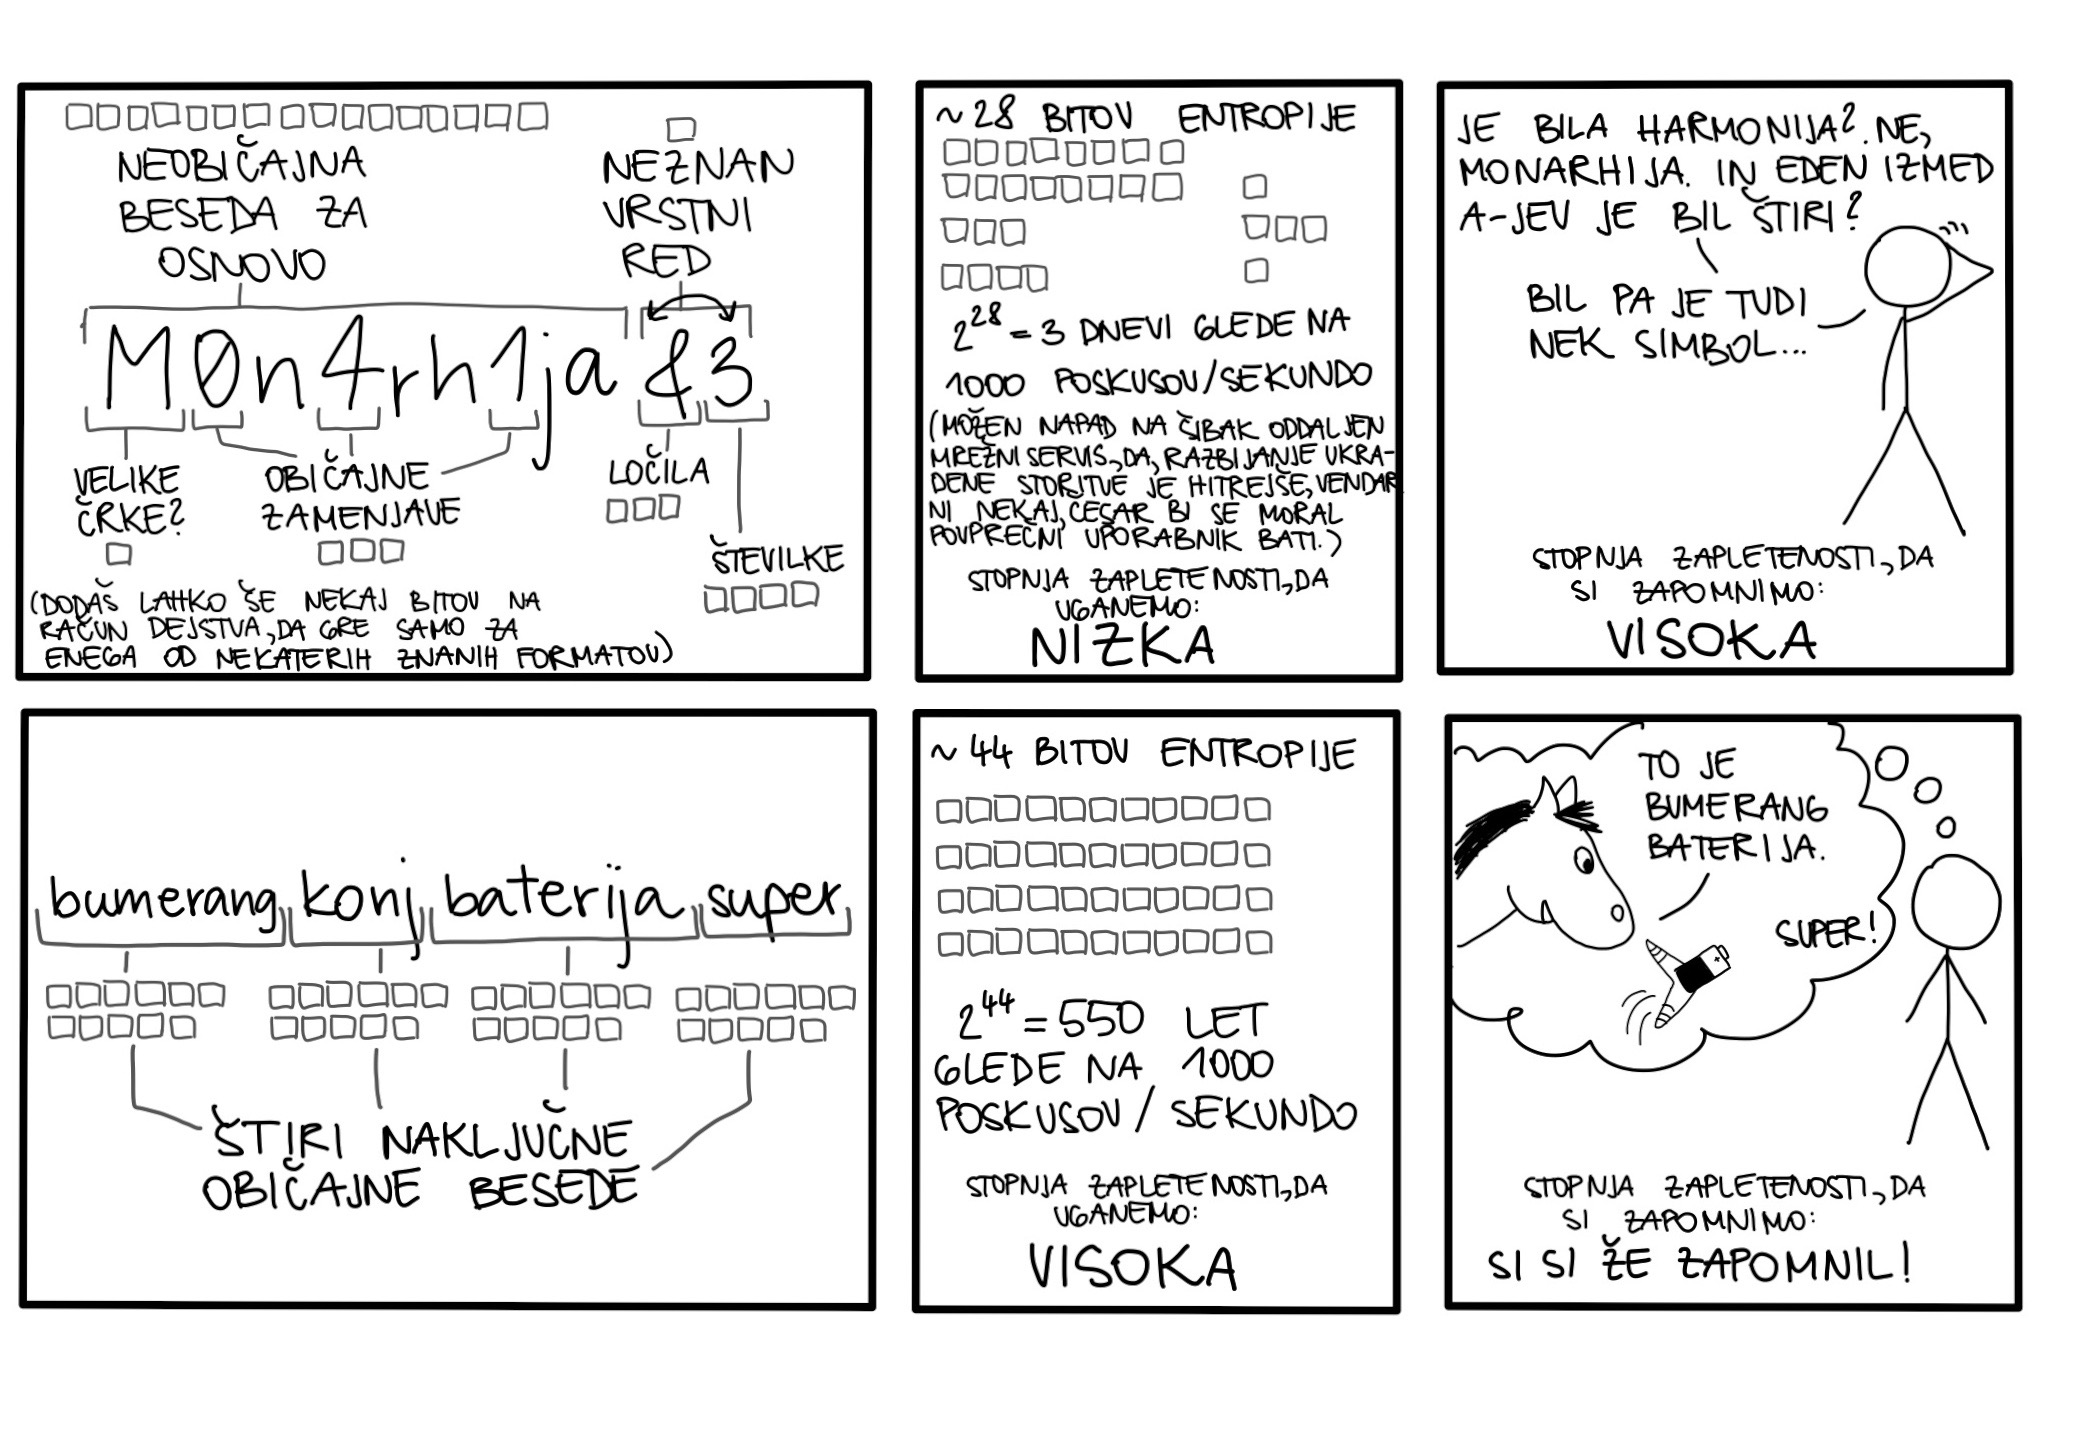 NEOBIČAJNA
BESEDA ZA
OSNOVO
NEZNAN
VRSTNI
RED
M0n4rh1ja &3
VELIKE
ČRKE?
OBIČAJNE
ZAMENJAVE
LOČILA
ŠTEVILKE
(DODAŠ LAHKO ŠE NEKAJ BITOV NA
RAČUN DEJSTVA, DA GRE SAMO ZA
ENEGA OD NEKATERIH ZNANIH FORMATOV)
~28 BITOV ENTROPIJE
2^28 = 3 DNEVI GLEDE NA
1000 POSKUSOV/SEKUNDO
(MOŽEN NAPAD NA ŠIBAK ODDALJEN
MREŽNI SERVIS, DA, RAZBIJANJE UKRA-
DENE STORITVE JE HITREJŠE, VENDAR
NI NEKAJ, ČESAR BI SE MORAL
POVPREČNI UPORABNIK BATI.)
STOPNJA ZAPLETENOSTI, DA
UGANEMO:
NIZKA
JE BILA HARMONIJA? NE,
MONARHIJA. IN EDEN IZMED
A-JEV JE BIL ŠTIRI?
BIL PA JE TUDI
NEK SIMBOL...
STOPNJA ZAPLETENOSTI, DA
SI ZAPOMNIMO:
VISOKA
bumerang konj baterija super
ŠTIRI NAKLJUČNE
OBIČAJNE BESEDE
~44 BITOV ENTROPIJE
2^44 = 550 LET
GLEDE NA 1000
POSKUSOV / SEKUNDO
STOPNJA ZAPLETENOSTI, DA
UGANEMO:
VISOKA
TO JE
BUMERANG
BATERIJA.
SUPER!
STOPNJA ZAPLETENOSTI, DA
SI ZAPOMNIMO:
SI SI ŽE ZAPOMNIL!